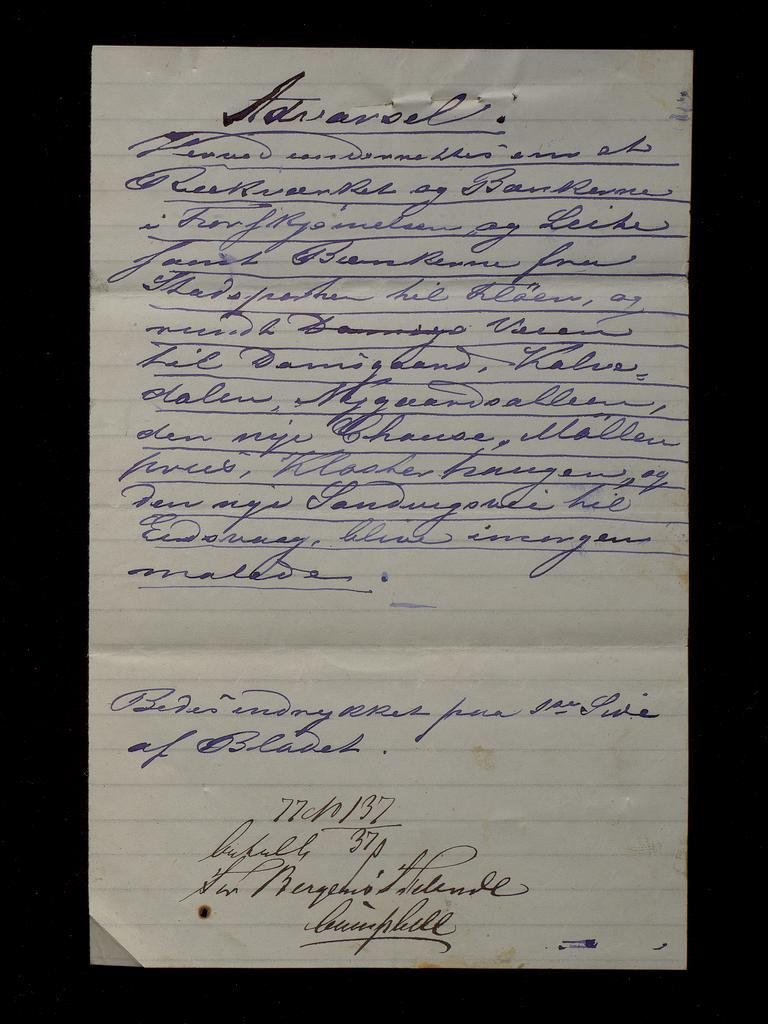 Advarsel.
Herved underrettes om at
Rækværket og Bænkerne
i Forskjønnelsen, og Leite
samt Bænkerne fra
Stadsporten til Fløen, og
rundt Damsg Veien
til Damsgaard, Kalve-
dalen, Nygaardsalleen,
den nye Chause, Møllen
priis, Klosterhaugen, og
den nye Sandvigsvei til
Eidsvaag, blive imorgen
malede.
Bedes indrykket paa 1ste Side
af Bladet.
77 No 137
37
for Bergens Tidende
Campbell